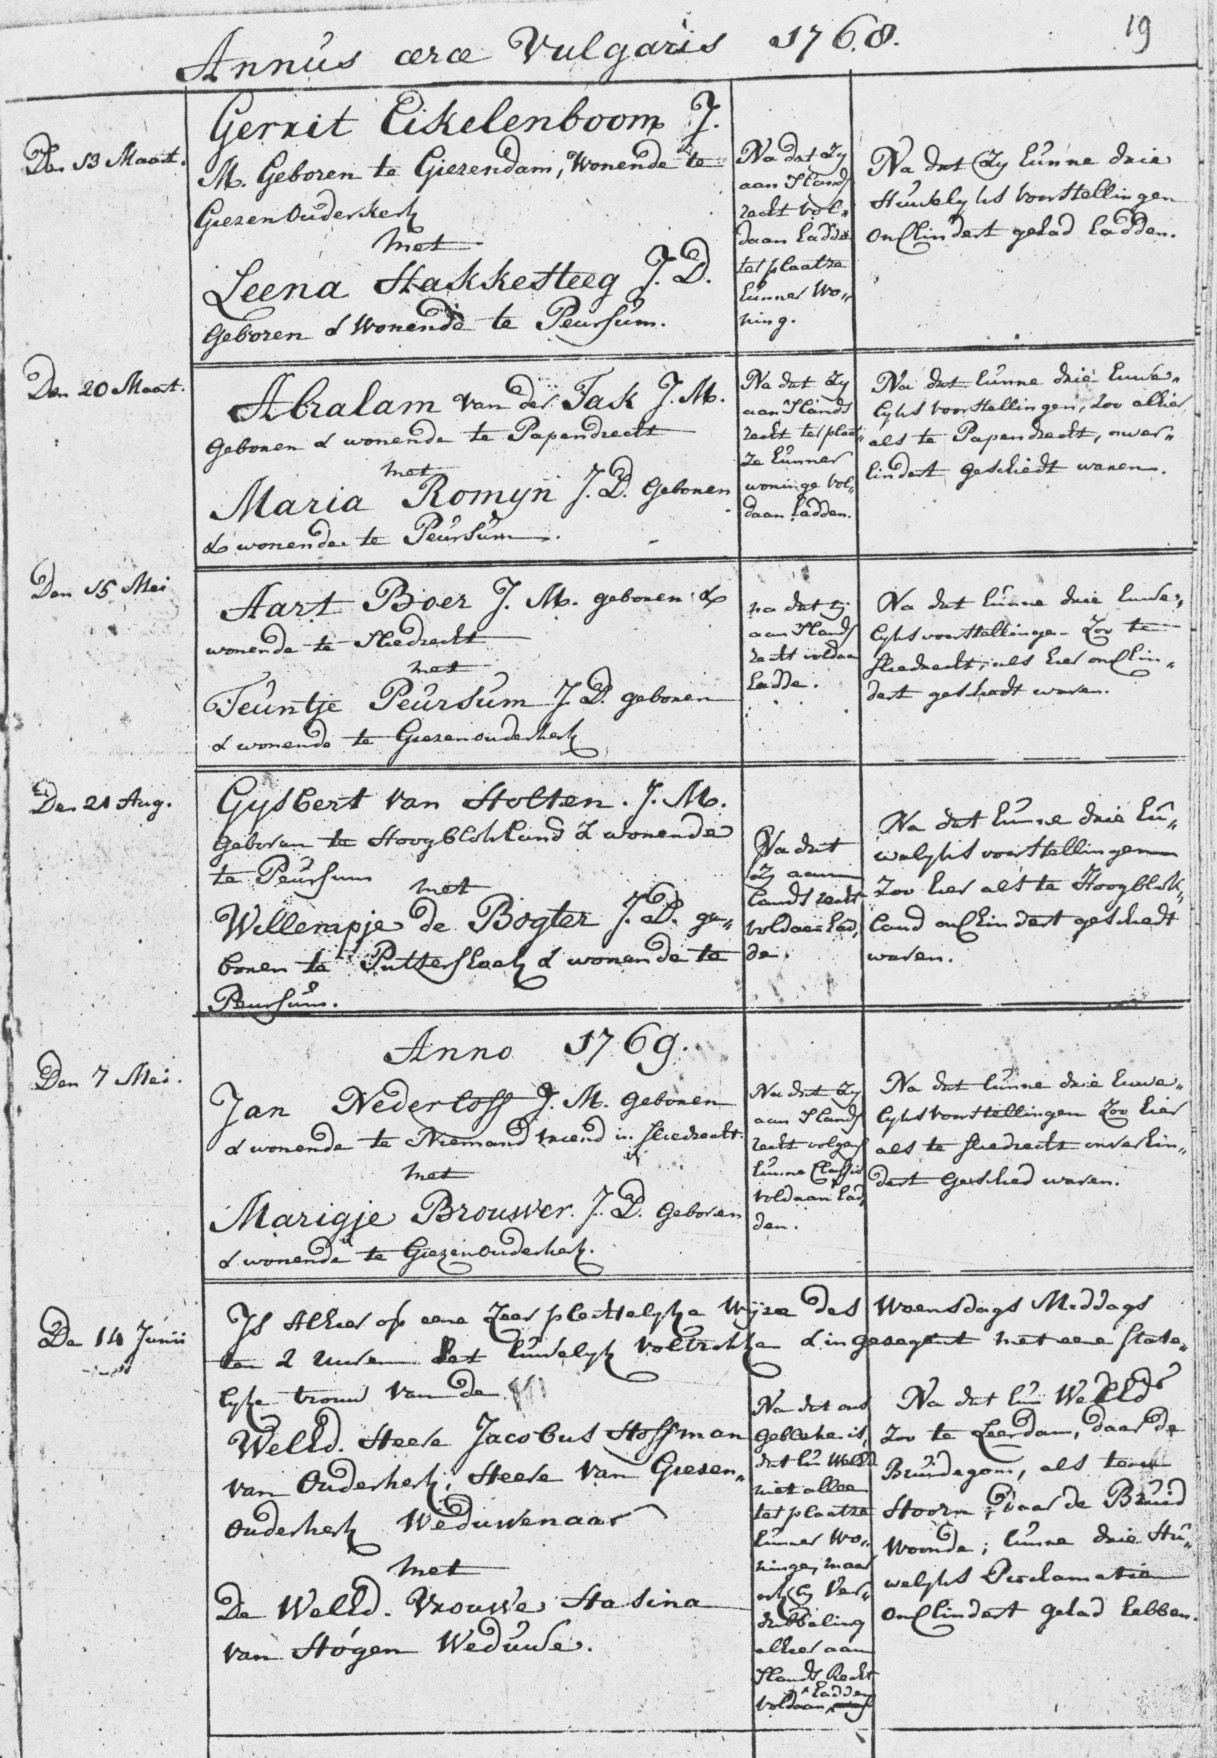 19
Annus æræ Vulgaris 1768.
Den 13 Maart.
Gerrit Eikelenboom J.
M. Geboren te Giezendam, Wonende te
Giezen Ouderkerk
met
Leena Hakkesteeg J. D.
Geboren & Wonende te Peursum.
Na dat Zy
aan 's lands
recht vol-
daan hadde
ter plaatze
hunner Wo-
ning.
Na dat Zy hunne drie
Huwelyks voorstellingen
onhindert gehad hadden.
Den 20 Maart.
Abraham van der Tak J. M.
Geboren & wonende te Papendrecht
met
Maria Romyn J. D. Geboren
& wonende te Peursum.
Na dat Zy
aan 's lands
recht ter plaat-
ze hunner
woninge vol-
daan hadden.
Na dat hunne drie huwe-
lyks voorstellingen, zoo alhier
als te Papendrecht, onver-
hindert geschiedt waren.
Den 15 Mei
Aart Boer J. M. geboren &
wonende te Sliedrecht
met
Teuntje Peursum J. D. geboren
& wonende te Giezenouderkerk
na dat zy
aan 's lands
recht voldaan
hadde.
Na dat hunne drie huwe-
lyks voorstellinge Zoo te
Sliedrecht, als hier onhin-
dert geschiedt waren.
Den 21 Aug.
Gysbert van Holten. J. M.
Geboren te Hoogblokland & wonende
te Peursum
met
Willempje de Bogter J. D. ge-
boren te Puttershoek & wonende te
Peursum.
Na dat
Zy aan
lands recht
voldaan had-
de.
Na dat hunne drie hu-
welyks voorstellingen
Zoo hier als te Hoogblok-
land onhindert geschiedt
waren.
Anno 1769.
Den 7 Mei.
Jan Nederloff J. M. Geboren
& wonende te Niemand vriend in Sliedrecht
met
Marigje Brouwer. J. D. Geboren
& wonende te Giezenouderkerk.
Na dat Zy
aan 's lands
recht volgens
hunne Classis
voldaan had-
den.
Na dat hunne drie huwe-
lyks voorstellingen Zoo hier
als te Sliedrecht onverhin-
dert geschied waren.
De 14 Junii
Is Alhier op eene Zeer plechtelyke wyze des Woensdags Middags
ten 2 uuren het huwelyk voltrokken & ingezegent met eene state-
lyke trouw van de
WelEd. Heere Jacobus Hoffman
van Ouderkerk, Heere van Giezen-
Ouderkerk Weduwenaar
met
De WelEd. Vrouwe Hasina
van Hogen Weduwe.
Na dat ons
gebleke is,
dat hu WelEd
niet allee
ter plaatze
hunner Wo-
ninge, maar
ook by Ver-
dubbeling
alhier aan
's lands Recht
voldaan hadden
Na dat hun WelEds
Zoo te Leerdam, daar de
Bruidegom, als te
Hoorn, daar de Bruid
woonde; hunne drie Hu-
welyks Proclamatie
onhindert gehad hebben.